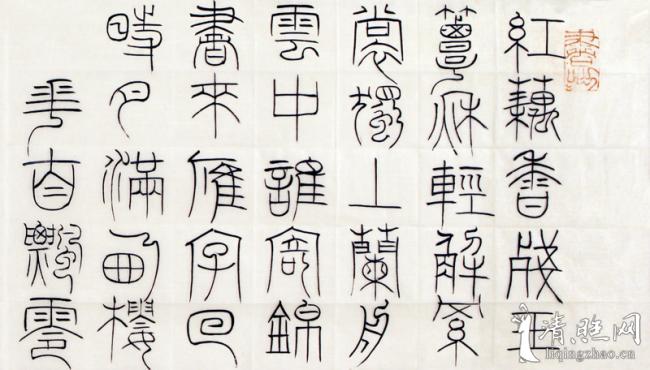 紅藕香殘玉
簟秋輕解羅
裳獨上蘭舟
雲中誰寄錦
書來雁字回
時月滿西樓
花自飄零
清照网
liqingzhao.cn